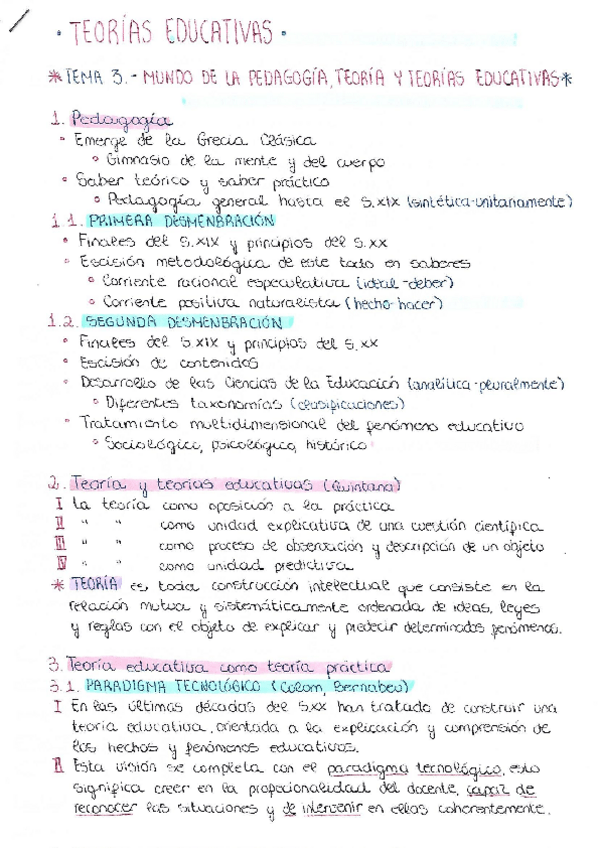 · TEORÍAS EDUCATIVAS ·
* TEMA 3.- MUNDO DE LA PEDAGOGÍA, TEORÍA Y TEORÍAS EDUCATIVAS *
1. Pedagogía
• Emerge de la Grecia Clásica
• Gimnasio de la mente y del cuerpo
• Saber teórico y saber práctico
• Pedagogía general hasta el S.XIX (sintética-unitariamente)
1.1. PRIMERA DESMENBRACIÓN
• Finales del S.XIX y principios del S.XX
• Escisión metodológica de este todo en saberes
• Corriente racional especulativa (ideal-deber)
• Corriente positiva naturalista (hecho-hacer)
1.2. SEGUNDA DESMENBRACIÓN
• Finales del S.XIX y principios del S.XX
• Escisión de contenidos
• Desarrollo de las Ciencias de la Educación (analítica-pluralmente)
• Diferentes taxonomías (clasificaciones)
• Tratamiento multidimensional del fenómeno educativo
• Sociológico, psicológico, histórico
2. Teoría y teorías educativas (Quintana)
I La teoría como oposición a la práctica
II " " como unidad explicativa de una cuestión científica
III " " como proceso de observación y descripción de un objeto
IV " " como unidad predictiva.
* TEORÍA es toda construcción intelectual que consiste en la
relación mutua y sistemáticamente ordenada de ideas, leyes
y reglas con el objeto de explicar y predecir determinados fenómenos.
3. Teoría educativa como teoría práctica
3.1. PARADIGMA TECNOLÓGICO (Colom, Bernabeu)
I En las últimas décadas del S.XX han tratado de construir una
teoría educativa, orientada a la explicación y comprensión de
los hechos y fenómenos educativos.
II Esta visión se completa con el paradigma tecnológico, esto
significa creer en la profesionalidad del docente, capaz de
reconocer las situaciones y de intervenir en ellas coherentemente.